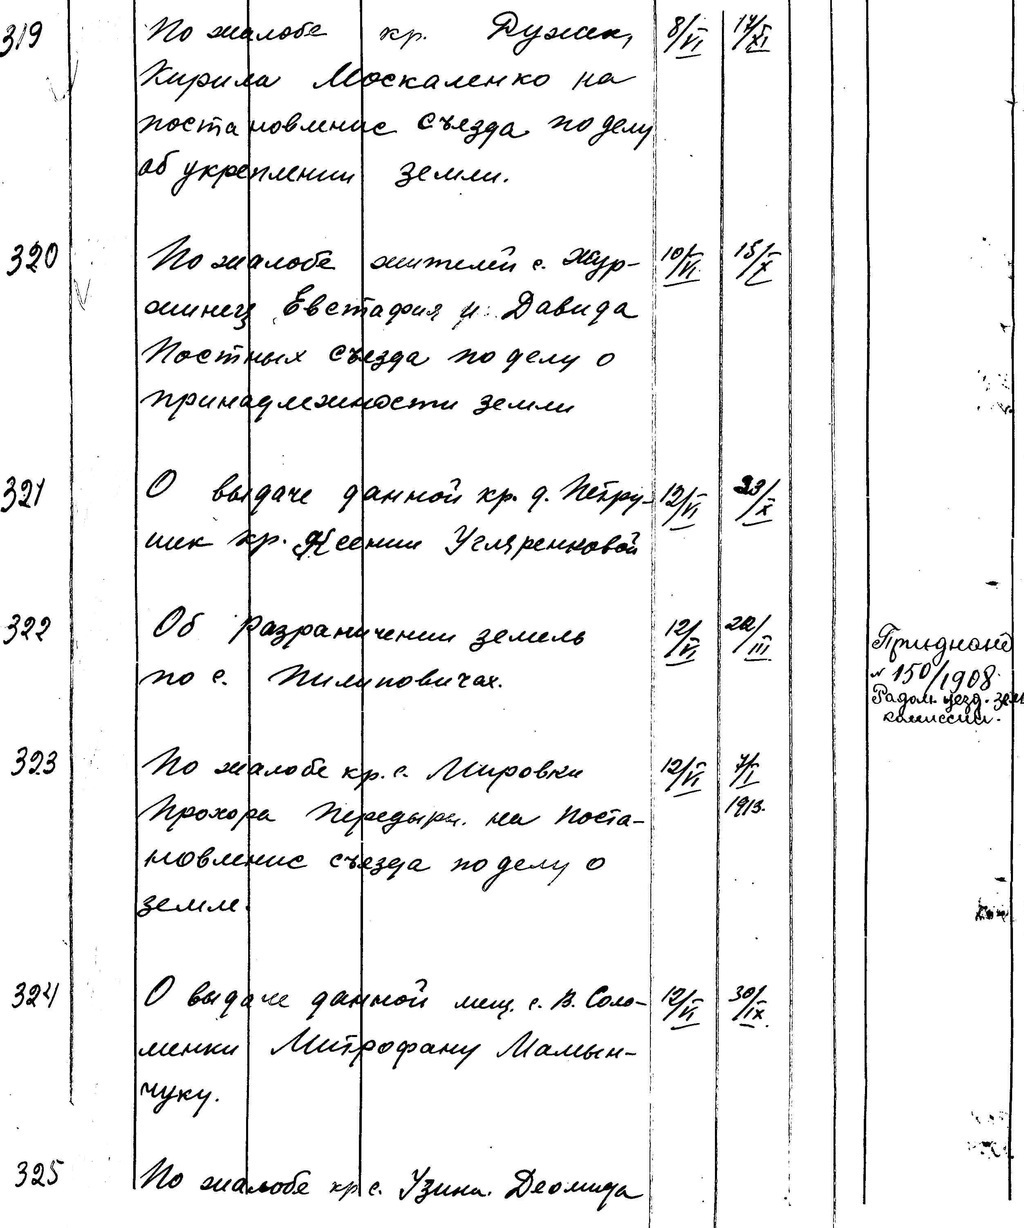 319 По жалобе кр. Дужек, 8/VI 17/XI
Кирила Москаленко на
постановление съезда по делу
об укреплении земли.
320 По жалобе жителей с. Жур- 10/VI 15/X
жинец Евстафия и Давида
Постных съезда по делу о
принадлежности земли
321 О выдаче данной кр. д. Петру- 12/VI 23/X
шек кр. Ксении Угляренковой
322 Об разграничении земель 12/VI 22/III
по с. Пилиповичах.
Приднано
№ 150/1908.
Радом. уезд. зем
комиссии.
323 По жалобе кр. с. Мировки 12/VI 7/I
Прохора Передыри. на поста- 1913.
новление съезда по делу о
земле.
324 О выдаче данной мещ. с. В. Соло- 12/VI 30/IX
менки Митрофану Мамын-
чуку.
325 По жалобе кр с. Узина. Деомида